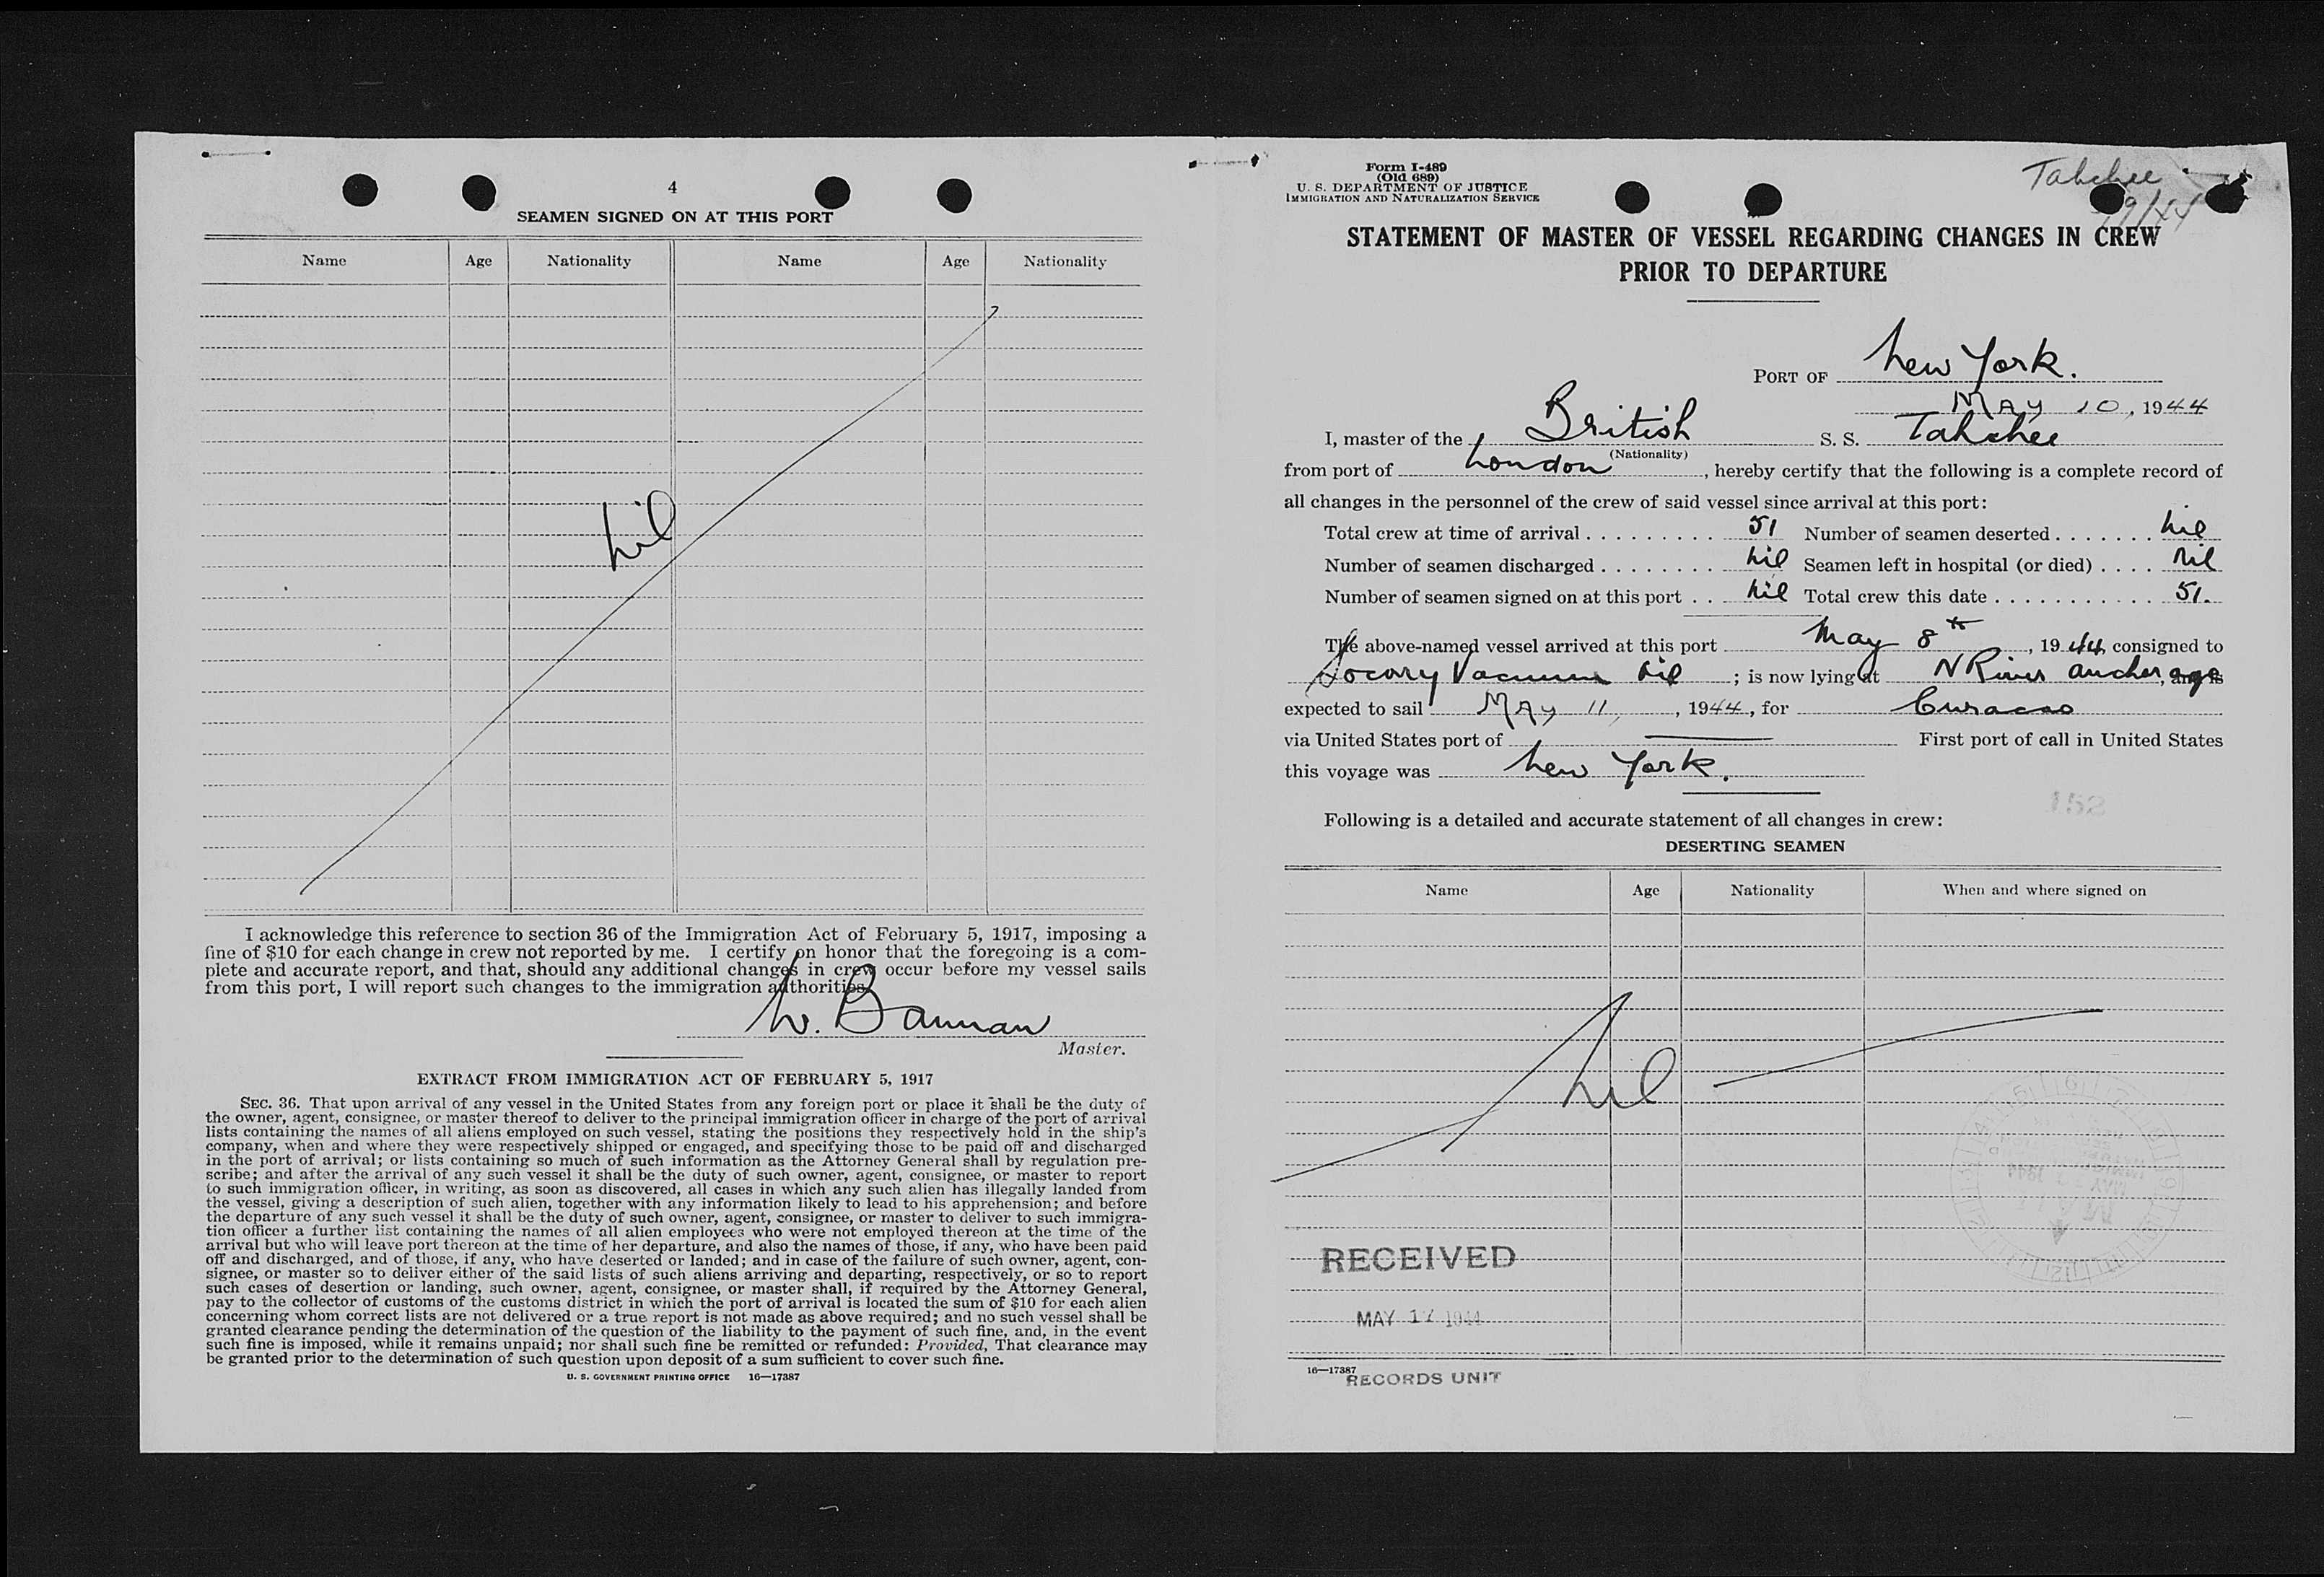 4
SEAMEN SIGNED ON AT THIS PORT
Name Age Nationality Name Age Nationality
nil
I acknowledge this reference to section 36 of the Immigration Act of February 5, 1917, imposing a
fine of $10 for each change in crew not reported by me. I certify on honor that the foregoing is a com-
plete and accurate report, and that, should any additional changes in crew occur before my vessel sails
from this port, I will report such changes to the immigration authorities.
W. Bannan
Master.
EXTRACT FROM IMMIGRATION ACT OF FEBRUARY 5, 1917
SEC. 36. That upon arrival of any vessel in the United States from any foreign port or place it shall be the duty of
the owner, agent, consignee, or master thereof to deliver to the principal immigration officer in charge of the port of arrival
lists containing the names of all aliens employed on such vessel, stating the positions they respectively hold in the ship's
company, when and where they were respectively shipped or engaged, and specifying those to be paid off and discharged
in the port of arrival; or lists containing so much of such information as the Attorney General shall by regulation pre-
scribe; and after the arrival of any such vessel it shall be the duty of such owner, agent, consignee, or master to report
to such immigration officer, in writing, as soon as discovered, all cases in which any such alien has illegally landed from
the vessel, giving a description of such alien, together with any information likely to lead to his apprehension; and before
the departure of any such vessel it shall be the duty of such owner, agent, consignee, or master to deliver to such immigra-
tion officer a further list containing the names of all alien employees who were not employed thereon at the time of the
arrival but who will leave port thereon at the time of her departure, and also the names of those, if any, who have been paid
off and discharged, and of those, if any, who have deserted or landed; and in case of the failure of such owner, agent, con-
signee, or master so to deliver either of the said lists of such aliens arriving and departing, respectively, or so to report
such cases of desertion or landing, such owner, agent, consignee, or master shall, if required by the Attorney General,
pay to the collector of customs of the customs district in which the port of arrival is located the sum of $10 for each alien
concerning whom correct lists are not delivered or a true report is not made as above required; and no such vessel shall be
granted clearance pending the determination of the question of the liability to the payment of such fine, and, in the event
such fine is imposed, while it remains unpaid; nor shall such fine be remitted or refunded: Provided, That clearance may
be granted prior to the determination of such question upon deposit of a sum sufficient to cover such fine.
U. S. GOVERNMENT PRINTING OFFICE 16—17387
Form I-489
(Old 689)
U. S. DEPARTMENT OF JUSTICE
IMMIGRATION AND NATURALIZATION SERVICE
Tahchee
STATEMENT OF MASTER OF VESSEL REGARDING CHANGES IN CREW
PRIOR TO DEPARTURE
PORT OF New York.
MAY 10, 1944
I, master of the British S. S. Tahchee
(Nationality)
from port of London, hereby certify that the following is a complete record of
all changes in the personnel of the crew of said vessel since arrival at this port:
Total crew at time of arrival . . . . . . . . . 51 Number of seamen deserted . . . . . . . nil
Number of seamen discharged . . . . . . . . nil Seamen left in hospital (or died) . . . . nil
Number of seamen signed on at this port . . nil Total crew this date . . . . . . . . . . . . 51.
The above-named vessel arrived at this port May 8th, 1944 consigned to
Socony Vacuum Oil; is now lying at N River anchorage, and is
expected to sail MAY 11, 1944, for Curacao
via United States port of First port of call in United States
this voyage was New York.
152
Following is a detailed and accurate statement of all changes in crew:
DESERTING SEAMEN
Name Age Nationality When and where signed on
nil
RECEIVED
MAY 17 1944
16—17387
RECORDS UNIT